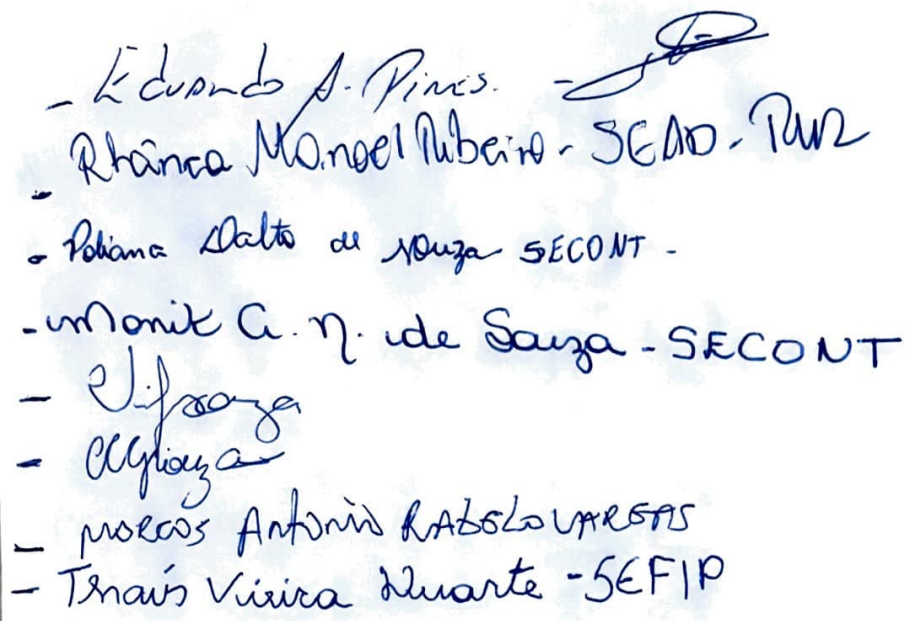 - Eduardo A. Pires. -
- Rhânca Manoel Ribeiro - SEAD -
- Poliana Dalto de Souza SECONT -
- Monik C. N. de Souza - SECONT
-
-
- Marcos Antonio RABELO VARGAS
- Thaís Vieira Duarte - SEFIP